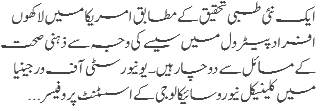 ایک نئی طبی تحقیق کے مطابق امریکا میں لاکھوں
افراد پیٹرول میں سیسے کی وجہ سے ذہنی صحت
کے مسائل سے دوچار ہیں۔ یونیورسٹی آف ورجینیا
میں کلینیکل نیوروسائیکالوجی کے اسسٹنٹ پروفیسر...